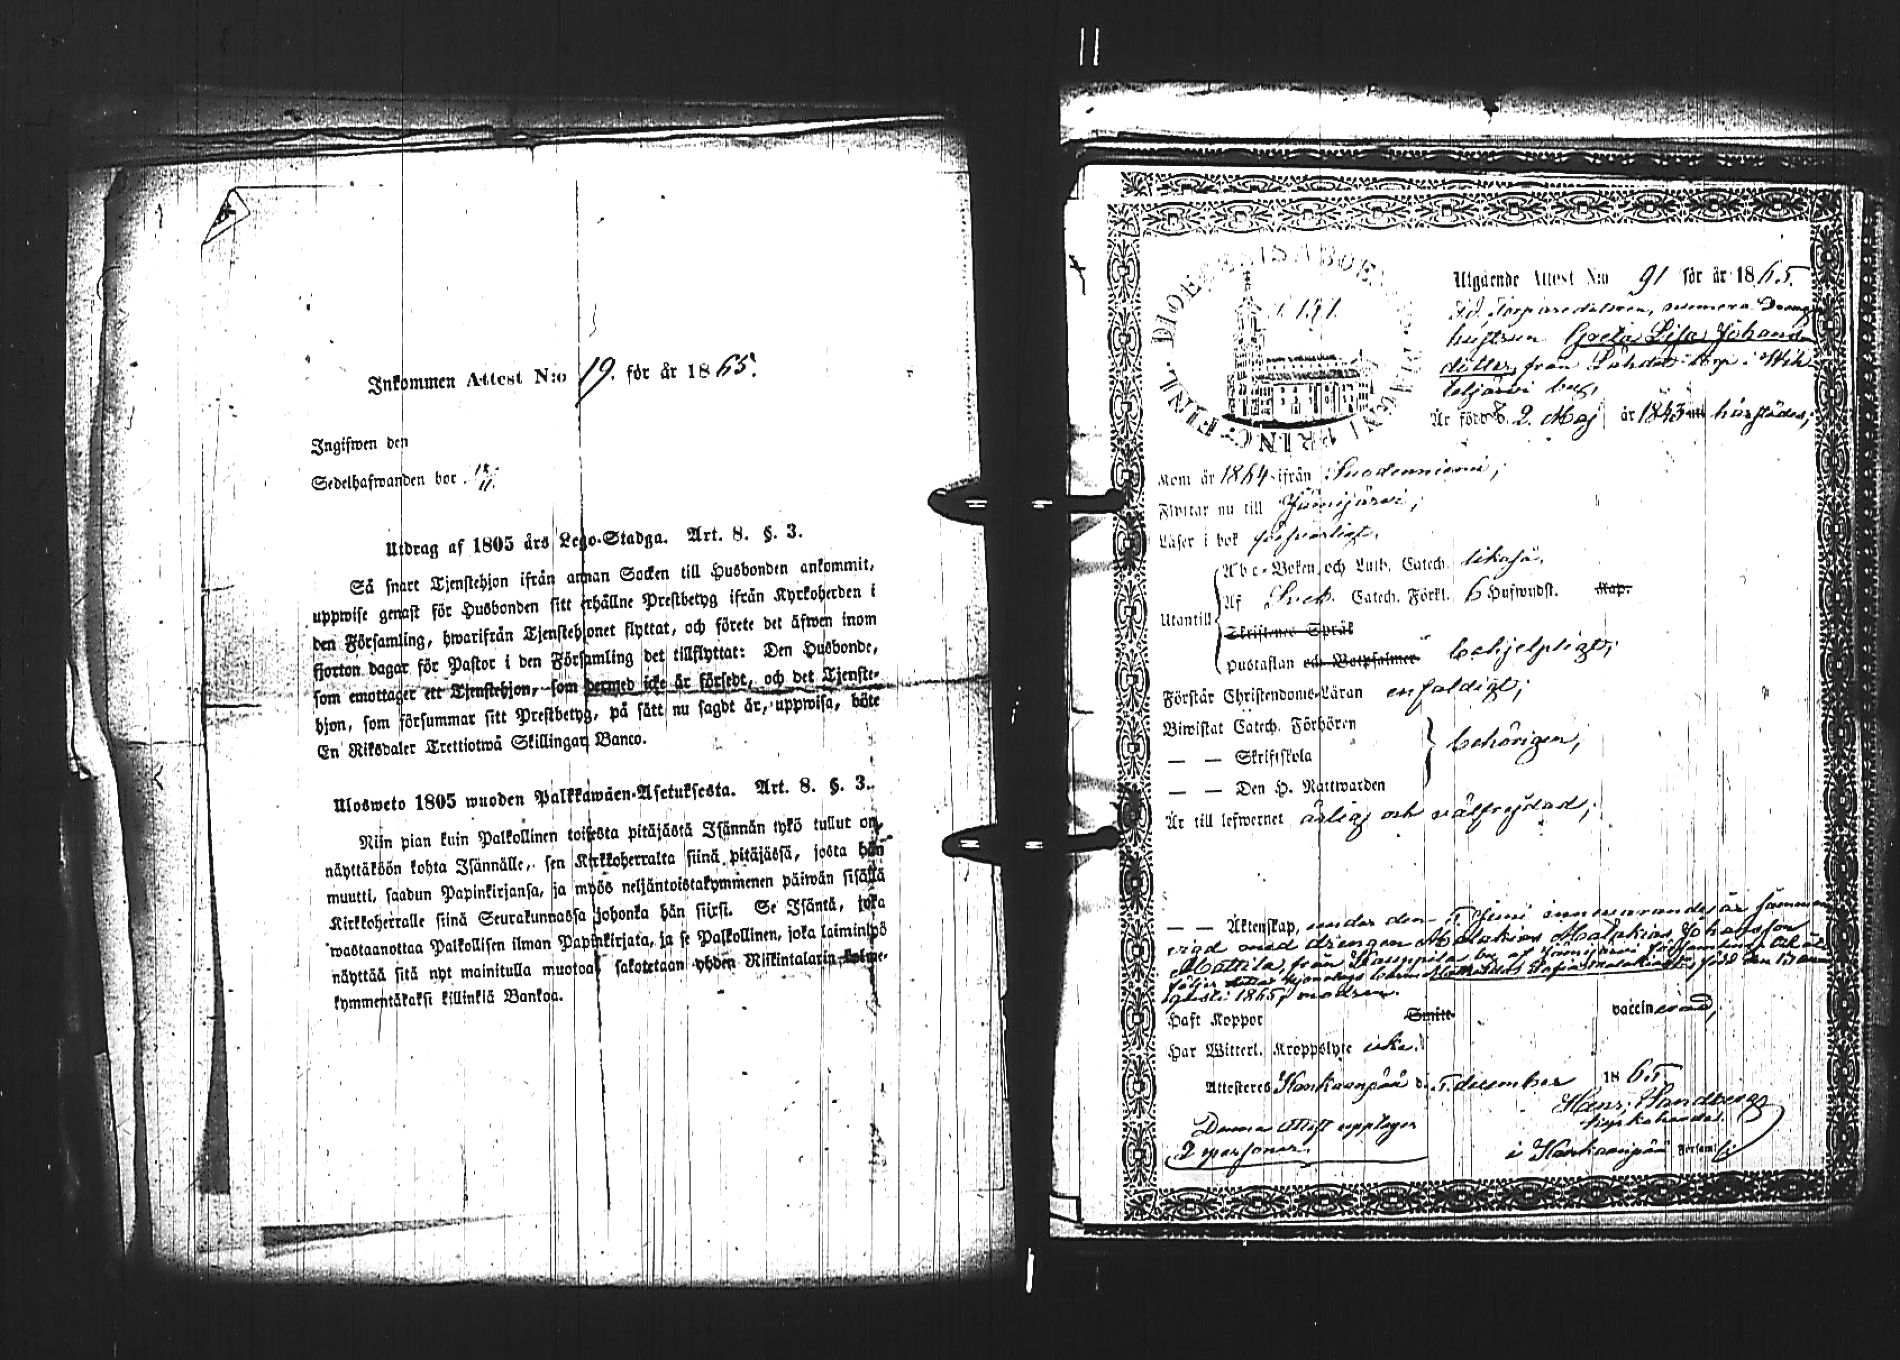 Inkommen Attest N:o 19. för år 1865.
Ingifwen den
Sedelhafwanden bor
Utdrag af 1805 års Lego-Stadga. Art. 8. §. 3.
Så snart Tjenstehjon ifrån annan Socken till Husbonden ankommit,
uppwise genast för Husbonden sitt erhållne Prestbetyg ifrån Kyrkoherden i
den Församling, hwarifrån Tjenstehjonet flyttat, och förete det äfwen inom
fjorton dagar för Pastor i den Församling det tillflyttat: Den Husbonde,
som emottager ett Tjenstehjon, som dermed icke är försedt, och det Tjenste-
hjon, som försummar sitt Prestbetyg, på sätt nu sagdt är, uppwisa, böte
En Riksdaler Trettiotwå Skillingar Banco.
Ulosweto 1805 wuoden Palkkawäen-Asetuksesta. Art. 8. §. 3.
Niin pian kuin Palkollinen toisesta pitäjästä Isännän tykö tullut on,
näyttäköön kohta Isännälle, sen Kirkkoherralta siinä pitäjässä, josta hän
muutti, saadun Papinkirjansa, ja myös neljäntoistakymmenen päiwän sisällä
Kirkkoherralle siinä Seurakunnassa johonka hän siirsi. Se Isäntä, joka
wastaanottaa Palkollisen ilman Papinkirjata, ja se Palkollinen, joka laiminlyö
näyttää sitä nyt mainitulla muotoa, sakotetaan yhden Riikintalarin kolme-
kymmentäkaksi killinkiä Bankoa.
Utgående Attest N:o 91 för år 1865.
hustrun Greta Lisa Johans
dotter, från
Är född d. 2. Maj år 1843 härstädes;
Kom år 1864 ifrån Suodenniemi;
Flyttar nu till Jämijärvi;
Läser i bok försvarligt.
Utantill
Abc-Boken och Luth. Catech. likaså.
Af Sveb. Catech. Förkl. 6 Hufwudst. Kap.
Skriftenes Språk
Hustaflan och Botpsalmer behjelpligt;
Förstår Christendoms-Läran enfaldigt;
Biwistat Catech. Förhören
— — Skriftskola behörigen;
— — Den H. Nattwarden
Är till lefwernet ärlig och välfrejdad;
— — Äktenskap, under den
vigd med drängen Malakias Malakias Johansson
Mattila, från Kauppila by af Jämijärvi församling, och åt
1865, modren.
Haft Koppor Smitt vaccinerad;
Har Witterl. Kroppslyte icke.
Attesteras Kankaanpää d. 5 december 1865
Hans Sandberg
kyrkoherde
i Kankaanpää Församl.
Denna Attest upptager
2 personer.